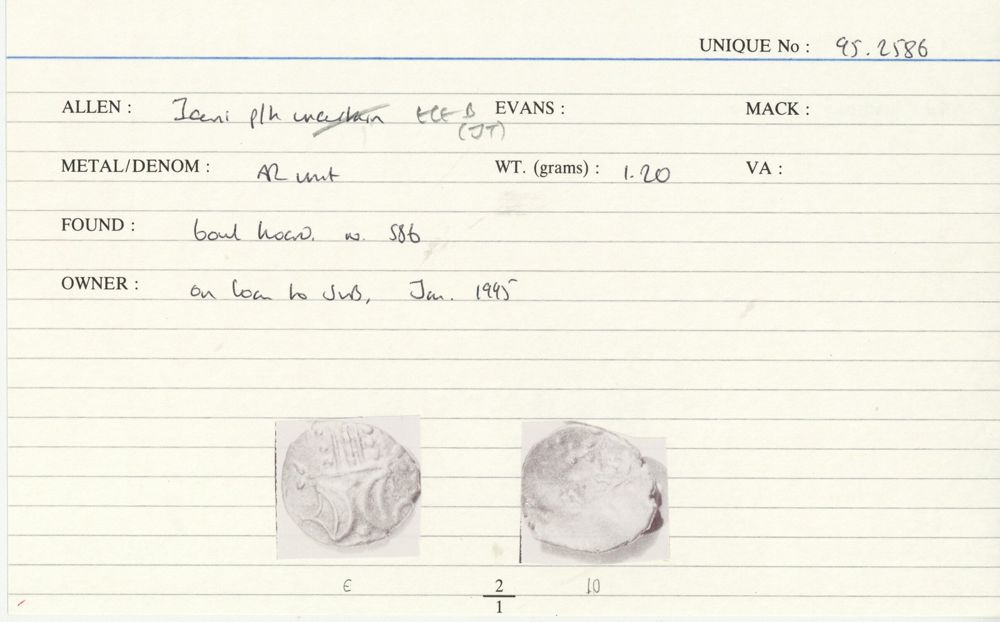 UNIQUE No : 95.2586
ALLEN : Iceni p/h uncertain ECE B EVANS : MACK :
(JT)
METAL/DENOM : AR unit WT. (grams) : 1.20 VA :
FOUND : hoard. 586
OWNER : on loan to Jan. 1995
€ 2 10
1